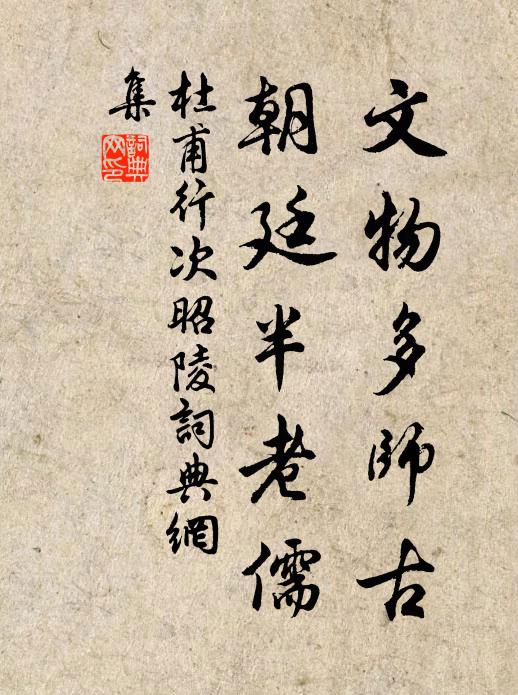 文物多師古
朝廷半老儒
杜甫行次昭陵詞典網
集
詞典網印